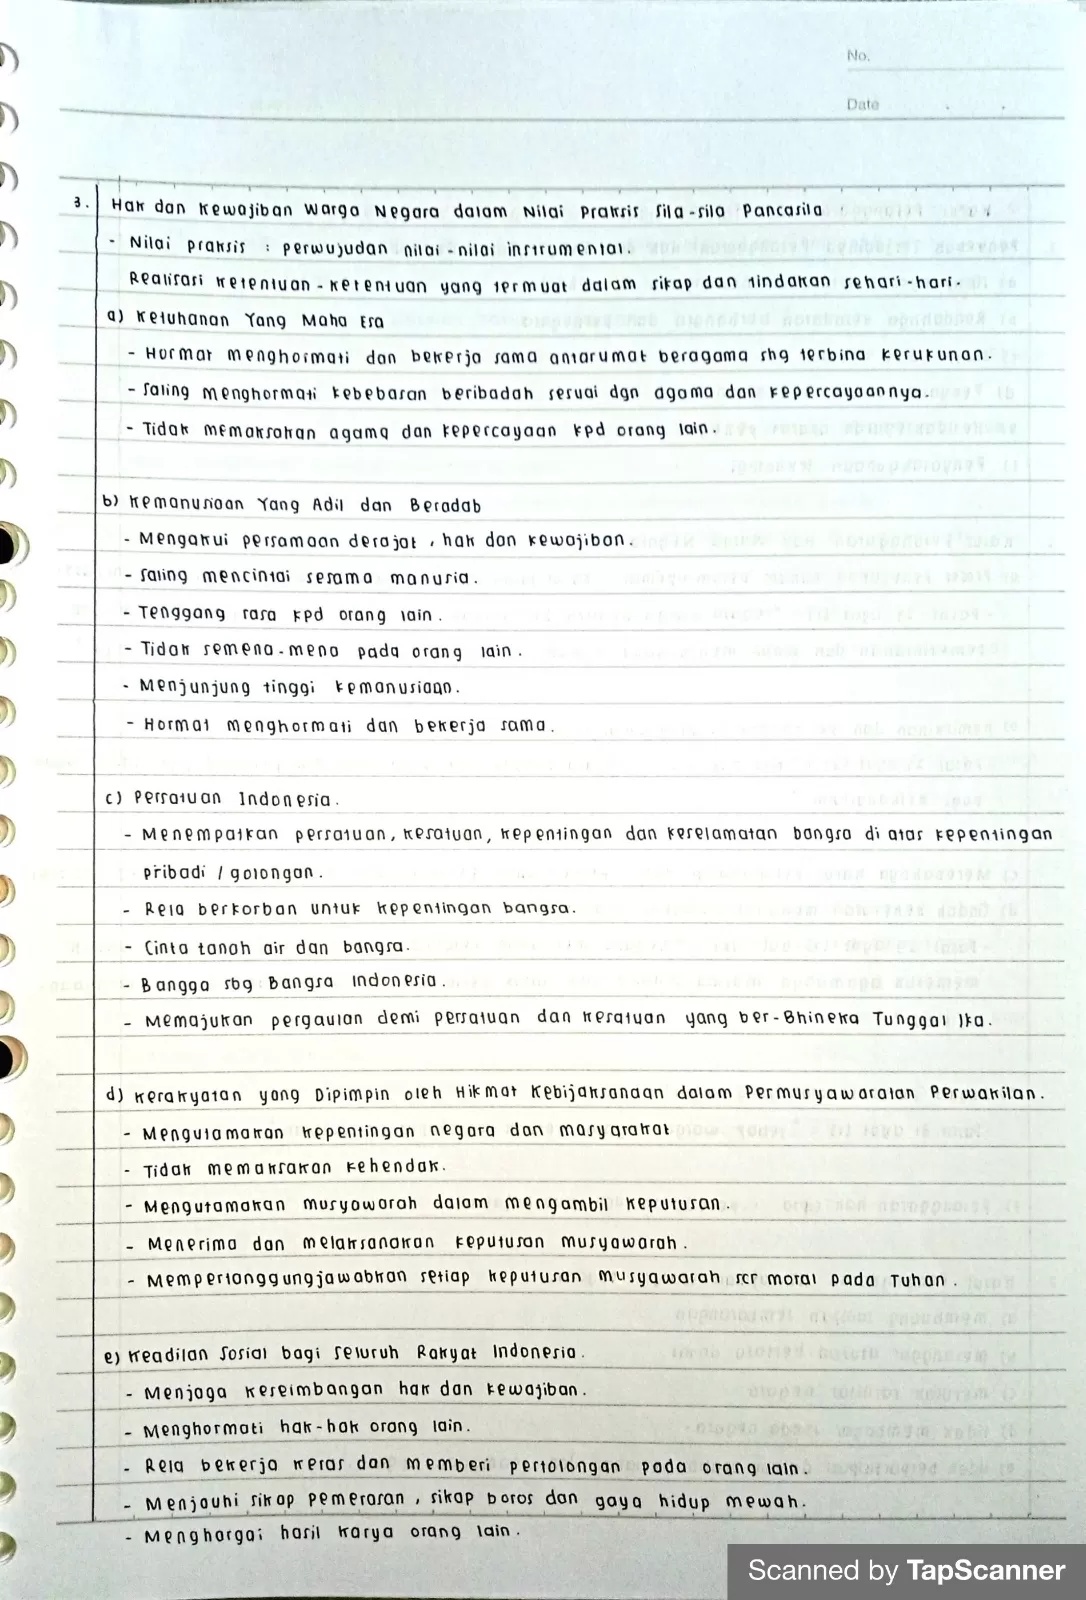 No.
Date
3. Hak dan Kewajiban Warga Negara dalam Nilai Praksis Sila-sila Pancasila
- Nilai praksis : perwujudan nilai-nilai instrumental.
Realisasi ketentuan-ketentuan yang termuat dalam sikap dan tindakan sehari-hari.
a) Ketuhanan Yang Maha Esa
- Hormat menghormati dan bekerja sama antarumat beragama shg terbina kerukunan.
- Saling menghormati kebebasan beribadah sesuai dgn agama dan kepercayaannya.
- Tidak memaksakan agama dan kepercayaan kpd orang lain.
b) Kemanusiaan Yang Adil dan Beradab
- Mengakui persamaan derajat, hak dan kewajiban.
- Saling mencintai sesama manusia.
- Tenggang rasa kpd orang lain.
- Tidak semena-mena pada orang lain.
- Menjunjung tinggi kemanusiaan.
- Hormat menghormati dan bekerja sama.
c) Persatuan Indonesia.
- Menempatkan persatuan, kesatuan, kepentingan dan keselamatan bangsa di atas kepentingan
pribadi / golongan.
- Rela berkorban untuk kepentingan bangsa.
- Cinta tanah air dan bangsa.
- Bangga sbg Bangsa Indonesia.
- Memajukan pergaulan demi persatuan dan kesatuan yang ber-Bhineka Tunggal Ika.
d) Kerakyatan yang Dipimpin oleh Hikmat Kebijaksanaan dalam Permusyawaratan Perwakilan.
- Mengutamakan kepentingan negara dan masyarakat
- Tidak memaksakan kehendak.
- Mengutamakan musyawarah dalam mengambil keputusan.
- Menerima dan melaksanakan keputusan musyawarah.
- Mempertanggungjawabkan setiap keputusan musyawarah scr moral pada Tuhan.
e) Keadilan Sosial bagi Seluruh Rakyat Indonesia.
- Menjaga keseimbangan hak dan kewajiban.
- Menghormati hak-hak orang lain.
- Rela bekerja keras dan memberi pertolongan pada orang lain.
- Menjauhi sikap pemerasan, sikap boros dan gaya hidup mewah.
- Menghargai hasil karya orang lain.
Scanned by TapScanner